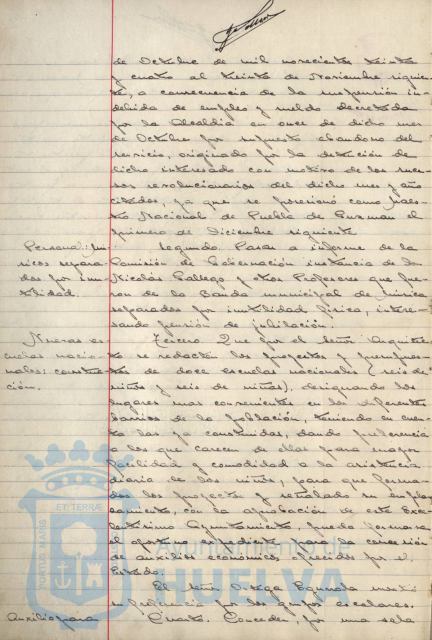 de Octubre de mil novecientos treinta
y cuatro al treinta de Noviembre siguien-
te, a consecuencia de la suspensión in-
debida de empleo y sueldo decretada
por la Alcaldía en once de dicho mes
de Octubre por supuesto abandono del
servicio, originado por la detención de
dicho interesado con motivo de los suce-
sos revolucionarios del dicho mes y año
citados, ya que se posesionó como Maes-
tro Nacional de Puebla de Guzman el
primero de Diciembre siguiente
Personal: Mú-
sicos separa-
dos por inu-
tilidad.
Segundo. Pasar a informe de la
Comisión de Gobernación instancia de Dn
Nicolás Gallego y otros Profesores que fue-
ron de la Banda municipal de música
separados por inutilidad física, intere-
sando pensión de jubilación.
Nuevas es-
cuelas nacio-
nales: construc-
ción.
Tercero. Que por el señor Arquitec-
to se redacten los proyectos y presupues-
tos de doce escuelas nacionales (seis de
niños y seis de niñas), designando los
lugares mas convenientes en los diferentes
barrios de la población, teniendo en cuen-
ta las ya construidas, dando preferencia
a los que carecen de ellas para mayor
facilidad y comodidad a la asistencia
diaria de los niños, para que forma-
dos los proyectos y señalado su empla-
zamiento, con la aprobación de este Exce-
lentísimo Ayuntamiento, pueda formarse
el oportuno expediente para la concesión
de auxilios económicos ofrecidos por el
Estado.
El señor Ortega
su preferencia por los grupos escolares.
Auxilio para
Cuarto. Conceder, por una sola
PORTUS MARIS ET TERRAE
Ayuntamiento de
HUELVA